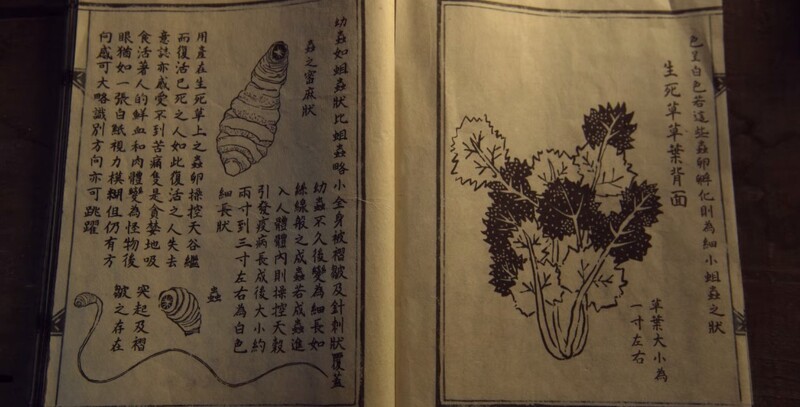 色呈白色若這些蟲卵孵化則為細小蛆蟲之狀
生死草草葉背面
草葉大小為
一寸左右
幼蟲如蛆蟲狀比蛆蟲略小全身被褶皺及針刺狀覆蓋
蟲之密麻狀
幼蟲不久後變為細長如
絲線般之成蟲若成蟲進
入人體體內則操控天穀
引發疫病長成後大小約
兩寸到三寸左右為白色
細長狀
蟲
突起及褶
皺之存在
用產在生死草上之蟲卵操控天谷繼
而復活已死之人如此復活之人失去
意誌亦感受不到苦痛隻是貪婪地吸
食活著人的鮮血和肉體變為怪物後
眼猶如一張白紙視力模糊但仍有方
向感可大略識別方向亦可跳躍